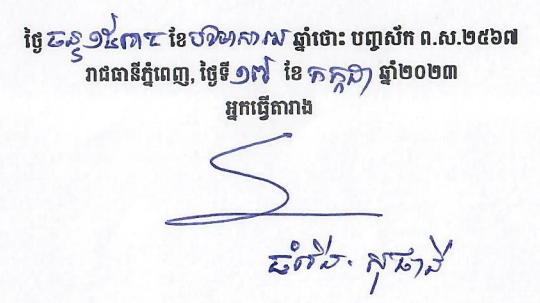 ថ្ងៃ ចន្ទ ១៥រោច ខែ បឋមាសាឍ ឆ្នាំថោះ បញ្ចស័ក ព.ស.២៥៦៧
រាជធានីភ្នំពេញ, ថ្ងៃទី ១៧ ខែ កក្កដា ឆ្នាំ២០២៣
អ្នកធ្វើតារាង